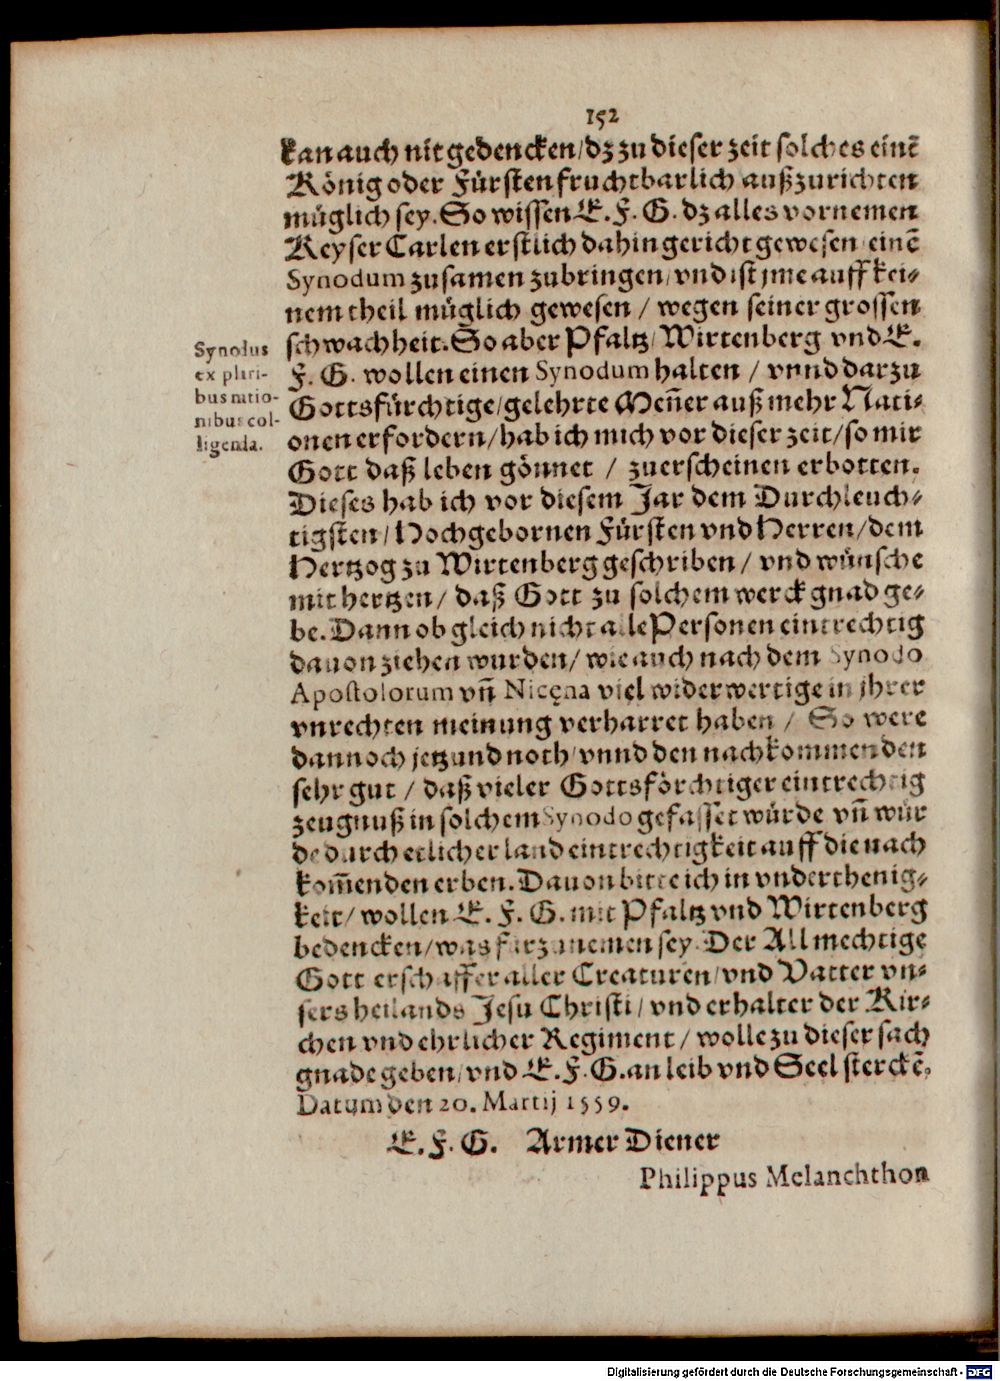 152
kan auch nit gedencken/dz zu dieser zeit solches einē
König oder Fürsten fruchtbarlich außzurichten
müglich sey. So wissen E. F. G. dz alles vornemen
Keyser Carlen erstlich dahin gericht gewesen einē
Synodum zusamen zubringen/vnd ist jme auff kei-
nem theil müglich gewesen / wegen seiner grossen
schwachheit. So aber Pfaltz/ Wirtenberg vnd E.
F. G. wollen einen Synodum halten / vnnd darzu
Gottsfürchtige/gelehrte Meñer auß mehr Nati-
onen erfordern/hab ich mich vor dieser zeit/so mir
Gott daß leben gönnet / zuerscheinen erbotten.
Synodus
ex pluri-
bus natio-
nibus col-
ligenda.
Dieses hab ich vor diesem Jar dem Durchleuch-
tigsten/Hochgebornen Fürsten vnd Herren/dem
Hertzog zu Wirtenberg geschriben / vnd wünsche
mit hertzen/ daß Gott zu solchem werck gnad ge-
be. Dann ob gleich nicht alle Personen eintrechtig
dauon ziehen wurden/ wie auch nach dem Synodo
Apostolorum vñ Nicęna viel widerwertige in jhrer
vnrechten meinung verharret haben / So were
dannoch jetzund noth/vnnd den nachkommenden
sehr gut / daß vieler Gottsförchtiger eintrechtig
zeugnuß in solchem Synodo gefasset würde vñ wür
de durch etlicher land eintrechtigkeit auff die nach
kom̃enden erben. Dauon bitte ich in vnderthenig-
keit/ wollen E. F. G. mit Pfaltz vnd Wirtenberg
bedencken/was fürzunemen sey. Der Allmechtige
Gott erschaffer aller Creaturen/vnd Vatter vn-
sers heilands Jesu Christi/ vnd erhalter der Kir-
chen vnd ehrlicher Regiment / wolle zu dieser sach
gnade geben/vnd E. F. G. an leib vnd Seel sterckē.
Datum den 20. Martij 1559.
E. F. G. Armer Diener
Philippus Melanchthon
Digitalisierung gefördert durch die Deutsche Forschungsgemeinschaft - DFG